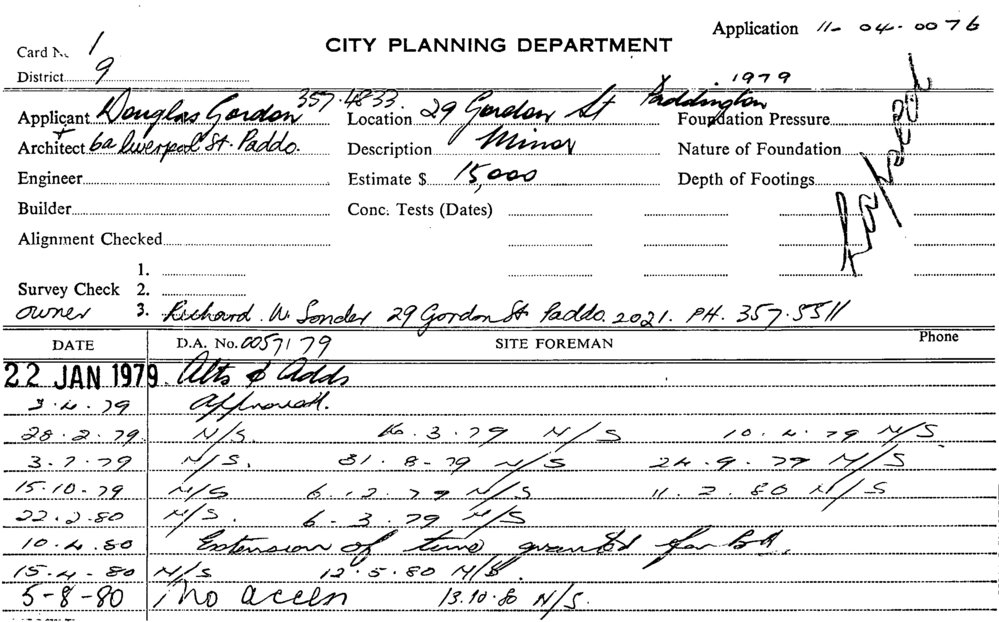 Application 11- 04-0076
Card No. 1
CITY PLANNING DEPARTMENT
District 9
1979
Applicant Douglas Gordon 357.4833. Location 29 Gordon St Paddington Foundation Pressure
+
Architect 6a Liverpool St. Paddo. Description Minor Nature of Foundation
Engineer Estimate $ 15,000 Depth of Footings
Lapsed
Builder Conc. Tests (Dates)
Alignment Checked
1.
Survey Check 2.
owner 3. Richard W. Sonder 29 Gordon St. Paddo. 2021. PH. 357.5511
DATE D.A. No. 0057179 SITE FOREMAN Phone
22 JAN 1979. Alts & Adds
3.4.79 Approved.
28.2.79. N/S. 16.3.79 N/S 10.4.79 N/S
3.7.79 N/S. 31.8-79 N/S 24.9.79 N/S
15.10.79 N/S 6.12.79 N/S 11.2.80 N/S
22.2.80 N/S. 6-3.79 N/S
10.4.80 Extension of time granted for BA.
15.4-80 N/S 12.5.80 N/S.
5-8-80 no access 13.10.80 N/S.